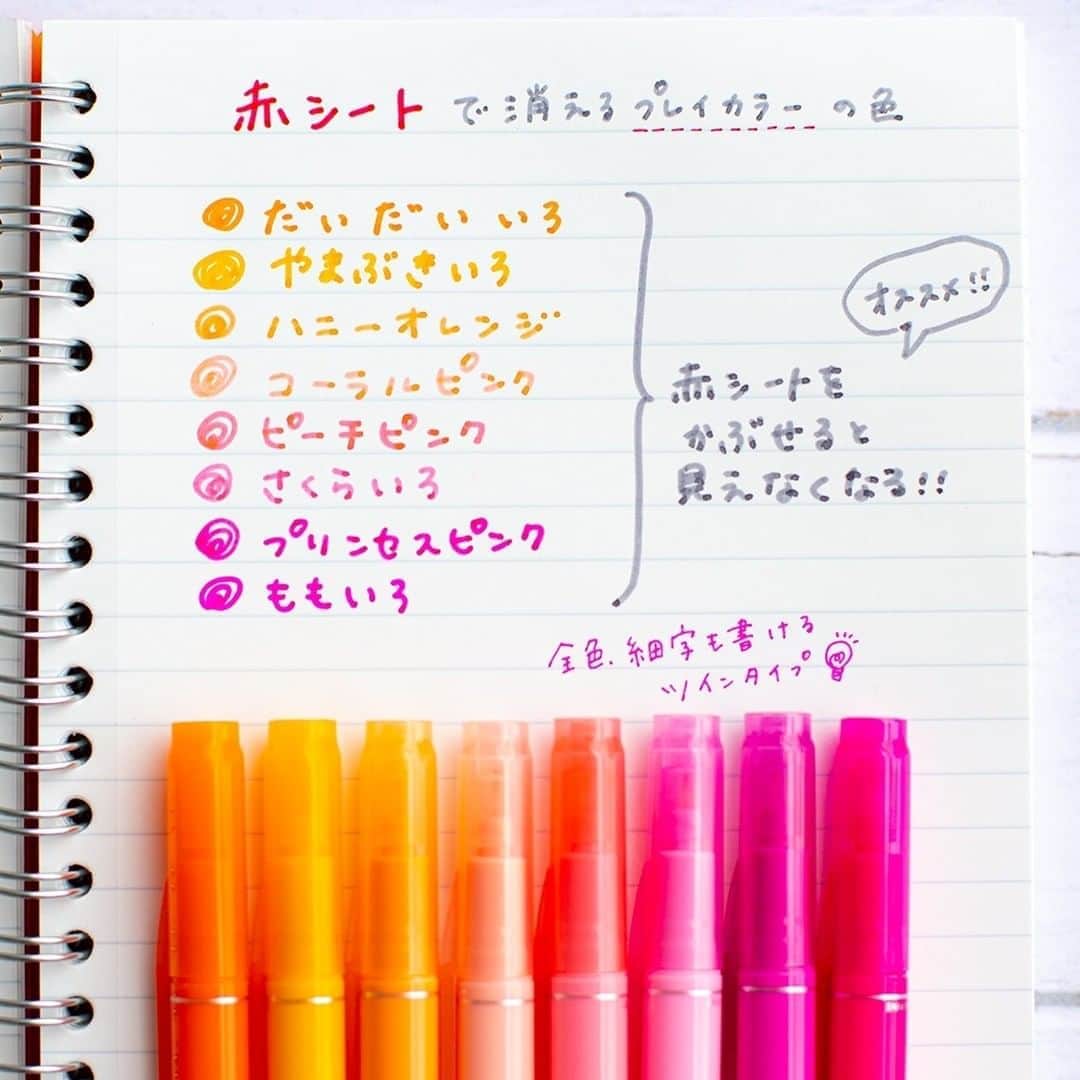 赤シートで消えるプレイカラーの色
だいだいいろ
やまぶきいろ
ハニーオレンジ
コーラルピンク
ピーチピンク
さくらいろ
プリンセスピンク
ももいろ
オススメ!!
赤シートを
かぶせると
見えなくなる!!
全色、細字も書ける
ツインタイプ